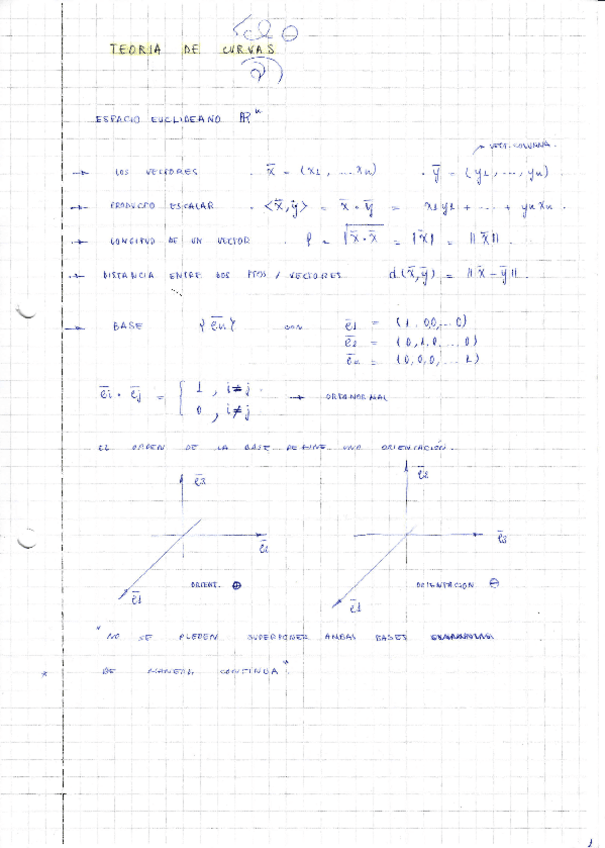 TEORIA DE CURVAS
ESPACIO EUCLIDEANO ℝⁿ
VECT. COLUMNA.
→ LOS VECTORES · x̄ = (x1, ... xn) · ȳ = (y1, ..., yn)
→ PRODUCTO ESCALAR · <x̄, ȳ> = x̄ · ȳ = x1y1 + ... + ynxn ·
→ LONGITUD DE UN VECTOR · l = √(x̄ · x̄) = |x̄| = ||x̄||
→ DISTANCIA ENTRE DOS PTOS / VECTORES d(x̄, ȳ) = ||x̄ - ȳ||
→ BASE {ēn} CON ē1 = (1, 0,0,... 0)
ē2 = (0,1,0, ... 0)
ēn = (0,0,0, ... 1)
ēi · ēj = { 1, i≠j → ORTONORMAL
0, i≠j
EL ORDEN DE LA BASE DEFINE UNA ORIENTACIÓN.
ē3
ē2
ē2
ē3
ORIENT. ⊕
ORIENTACION ⊖
ē1
ē1
"NO SE PUEDEN SUPERPONER AMBAS BASES
* DE MANERA CONTINUA"
1